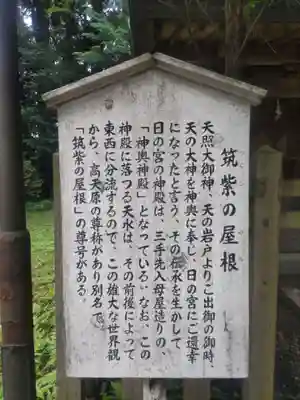 筑紫の屋根
天照大御神、天の岩戸よりご出御の御時、
天の大神を神輿に奉じ、日の宮にご還幸
になったと言う、その伝承を生かして
日の宮の神殿は、三手先入母屋造りの、
「神輿神殿」となっている。なお、この
神殿に落つる天水は、その前後によって
東西に分流するので、この雄大な世界観
から、高天原の尊称があり別名で、
「筑紫の屋根」の尊号がある。